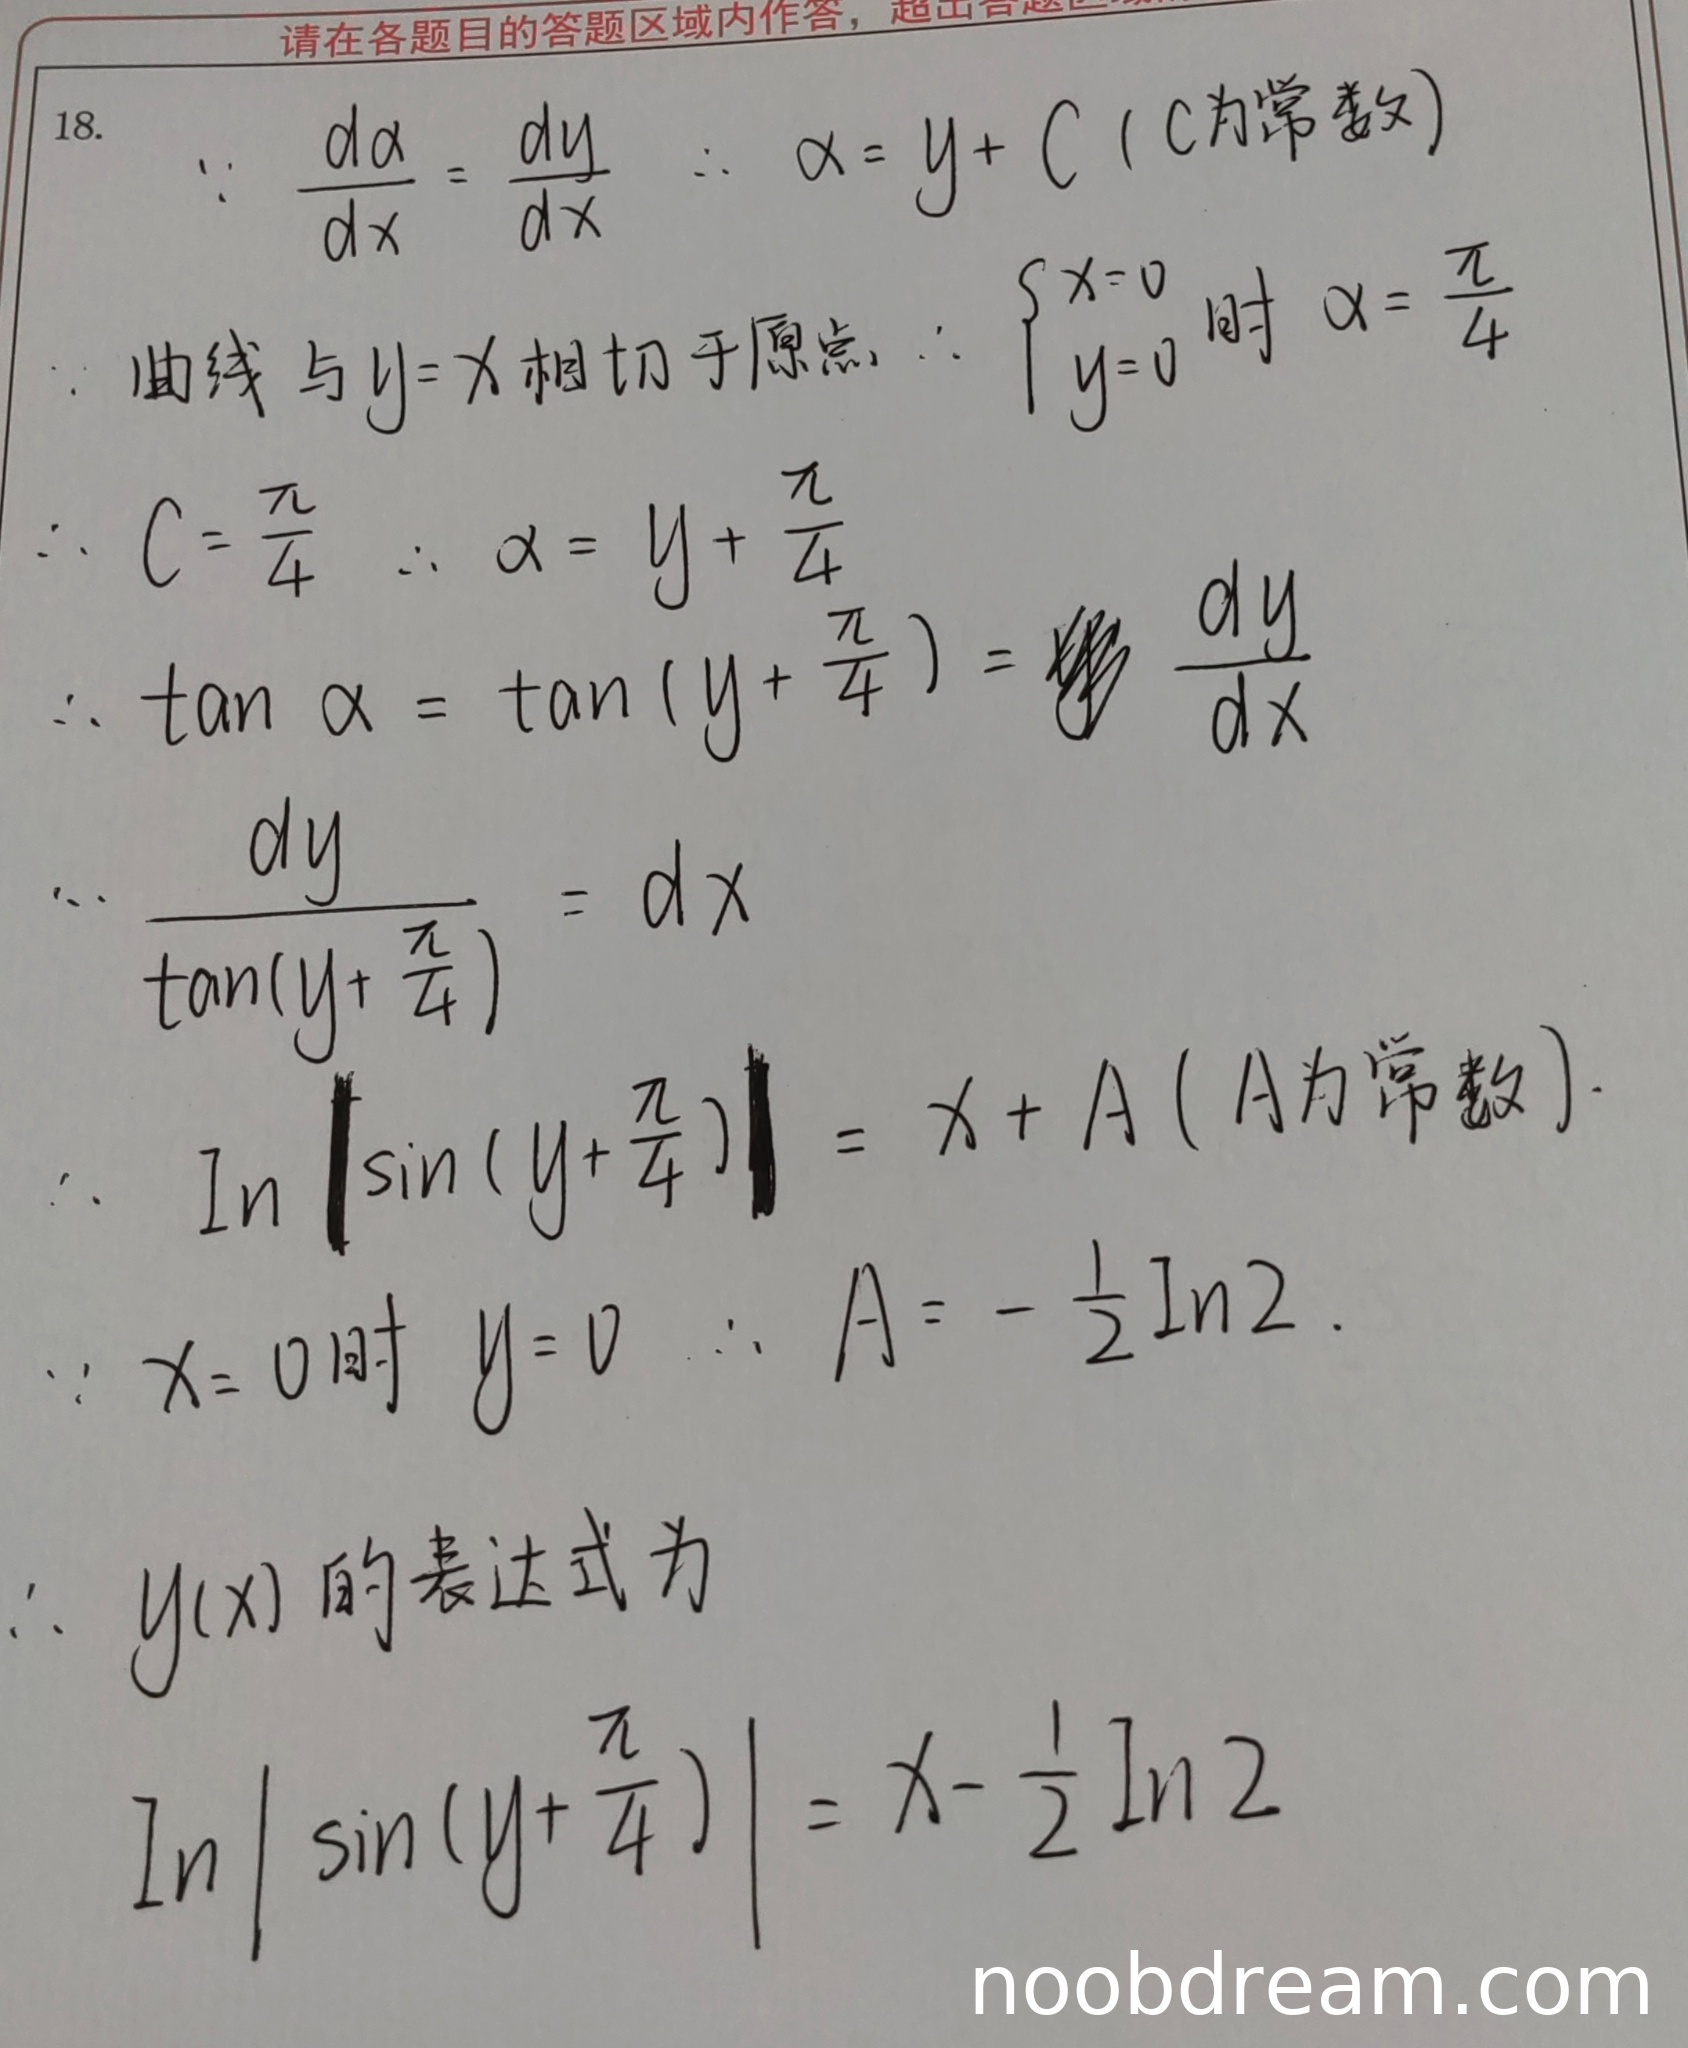 请在各题目的答题区域内作答，超出答题区域
18.
∵ dα/dx = dy/dx ∴ α = y + C (C为常数)
∵ 曲线与y=x相切于原点 ∴ {x=0 y=0 时 α = π/4
∴ C = π/4 ∴ α = y + π/4
∴ tan α = tan(y + π/4) = dy/dx
∵ dy/tan(y+π/4) = dx
∴ In |sin(y+π/4)| = x + A (A为常数).
∵ x=0时 y=0 ∴ A = - 1/2 In2.
∴ y(x)的表达式为
In|sin(y+π/4)| = x - 1/2 In2
noobdream.com